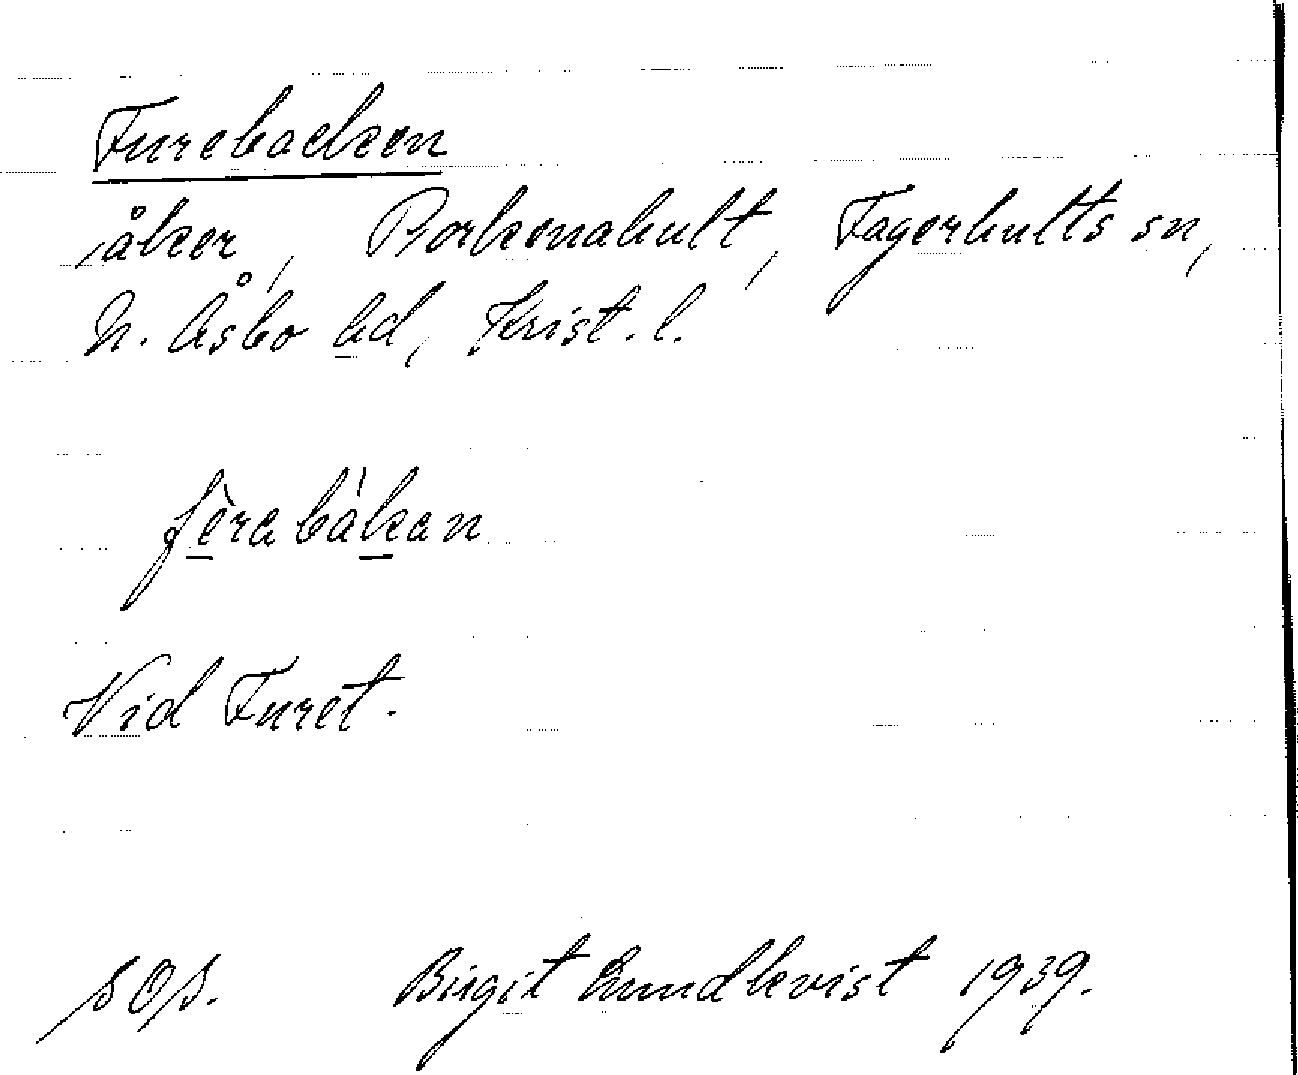 Furebacken
åker, Porkenahult, Fagerhults sn,
N. Åsbo hd, Krist. l.
fèrabàkan
Vid Furet.
SOS. Birgit Lundkvist 1939.